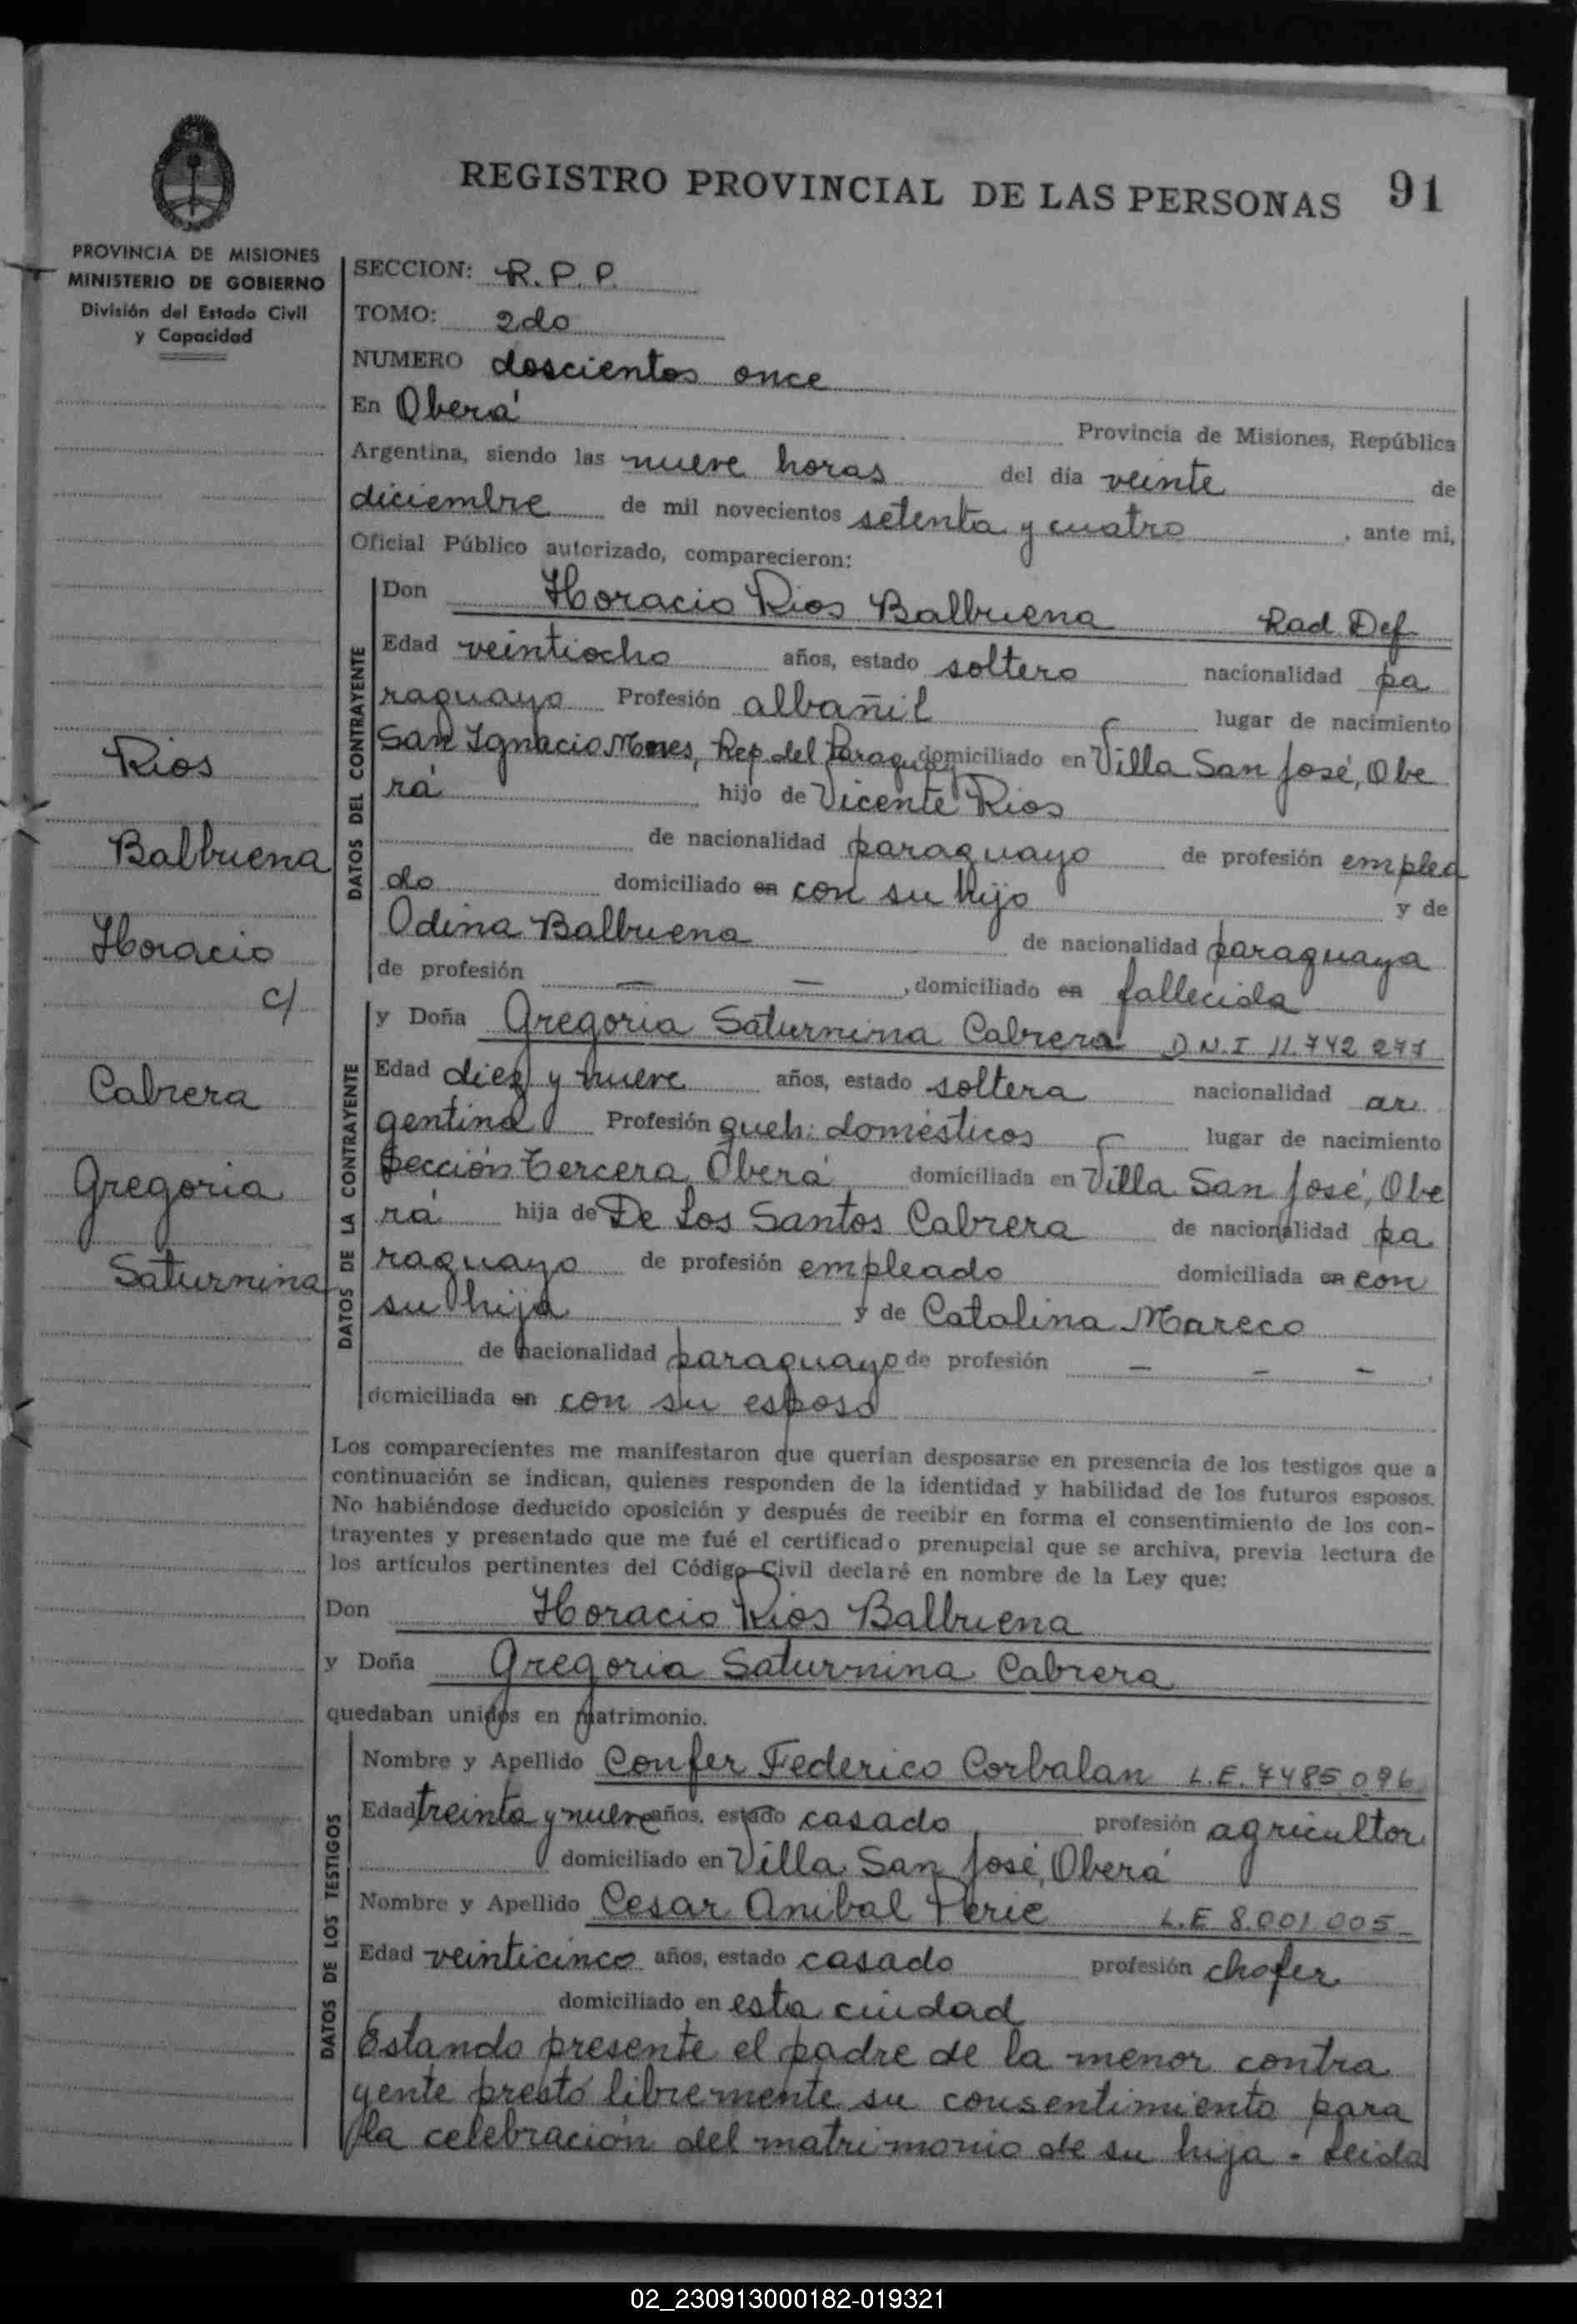 REGISTRO PROVINCIAL DE LAS PERSONAS 91
PROVINCIA DE MISIONES
MINISTERIO DE GOBIERNO
División del Estado Civil
y Capacidad
Rios
Balbuena
Horacio
c/
Cabrera
Gregoria
Saturnina
SECCION: R.P.P.
TOMO: 2do
NUMERO doscientos once
En Oberá Provincia de Misiones, República
Argentina, siendo las nueve horas del día veinte de
diciembre de mil novecientos setenta y cuatro, ante mi,
Oficial Público autorizado, comparecieron:
DATOS DEL CONTRAYENTE
Don Horacio Rios Balbuena Rad Def
Edad veintiocho años, estado soltero nacionalidad pa
raguayo Profesión albañil lugar de nacimiento
San Ignacio Mnes, Rep. del Paraguay domiciliado en Villa San José, Obe
rá hijo de Vicente Rios
de nacionalidad paraguayo de profesión emplea
do domiciliado en con su hijo y de
Odina Balbuena de nacionalidad paraguaya
de profesión — —, domiciliado en fallecida
DATOS DE LA CONTRAYENTE
y Doña Gregoria Saturnina Cabrera D.N.I 11.742.277
Edad diez y nueve años, estado soltera nacionalidad ar
gentina Profesión queh: domésticos lugar de nacimiento
Sección Tercera, Oberá domiciliada en Villa San José, Obe
rá hija de De Los Santos Cabrera de nacionalidad pa
raguayo de profesión empleado domiciliada en con
su hija y de Catalina Mareco
de nacionalidad paraguayo de profesión — — —,
domiciliada en con su esposo
Los comparecientes me manifestaron que querían desposarse en presencia de los testigos que a
continuación se indican, quienes responden de la identidad y habilidad de los futuros esposos.
No habiéndose deducido oposición y después de recibir en forma el consentimiento de los con-
trayentes y presentado que me fué el certificado prenupcial que se archiva, previa lectura de
los artículos pertinentes del Código Civil declaré en nombre de la Ley que:
Don Horacio Rios Balbuena
y Doña Gregoria Saturnina Cabrera
quedaban unidos en matrimonio.
DATOS DE LOS TESTIGOS
Nombre y Apellido Confer Federico Corbalan L.E. 7485.096
Edad treinta y nueve años, estado casado profesión agricultor
domiciliado en Villa San José, Oberá
Nombre y Apellido Cesar Anibal Perie L.E 8.001.005
Edad veinticinco años, estado casado profesión chofer
domiciliado en esta ciudad
Estando presente el padre de la menor contra
yente prestó libremente su consentimiento para
la celebración del matrimonio de su hija - Leida
02_230913000182-019321